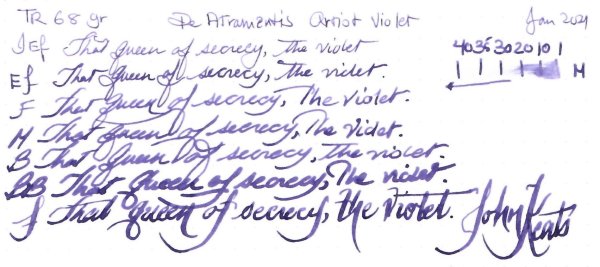 TR 68 gr De Atramentis Artist Violet Jan 2021
IEf That queen of secrecy, the violet
40 35 30 20 10 1
Ef That Queen of secrecy, the violet.
M
F That Queen of secrecy, The Violet.
M That queen of secrecy, The Violet.
B That Queen of secrecy, the violet.
BB That Queen of secrecy, The violet.
J That queen of secrecy, the Violet. John Keats